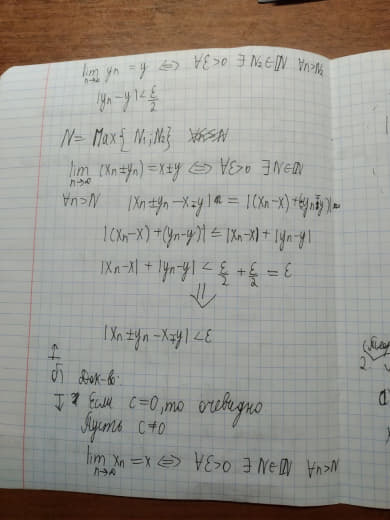 lim yn = y ⇔ ∀ε>0 ∃N₂∈ℕ ∀n>N₂
n→∞
|yn-y|<ε/2
N= Max{N₁;N₂}
lim (xn±yn)=x±y ⇔ ∀ε>0 ∃N∈ℕ
n→∞
∀n>N |xn±yn-x∓y| = |(xn-x)+(yn∓y)|
|(xn-x)+(yn-y)| ≤ |xn-x|+|yn-y|
|xn-x|+|yn-y| < ε/2 + ε/2 = ε
⇓
|xn±yn-x∓y|<ε
б) Док-во:
Если c=0, то очевидно
Пусть c≠0
lim xn = x ⇔ ∀ε>0 ∃N∈ℕ ∀n>N
n→∞
2.